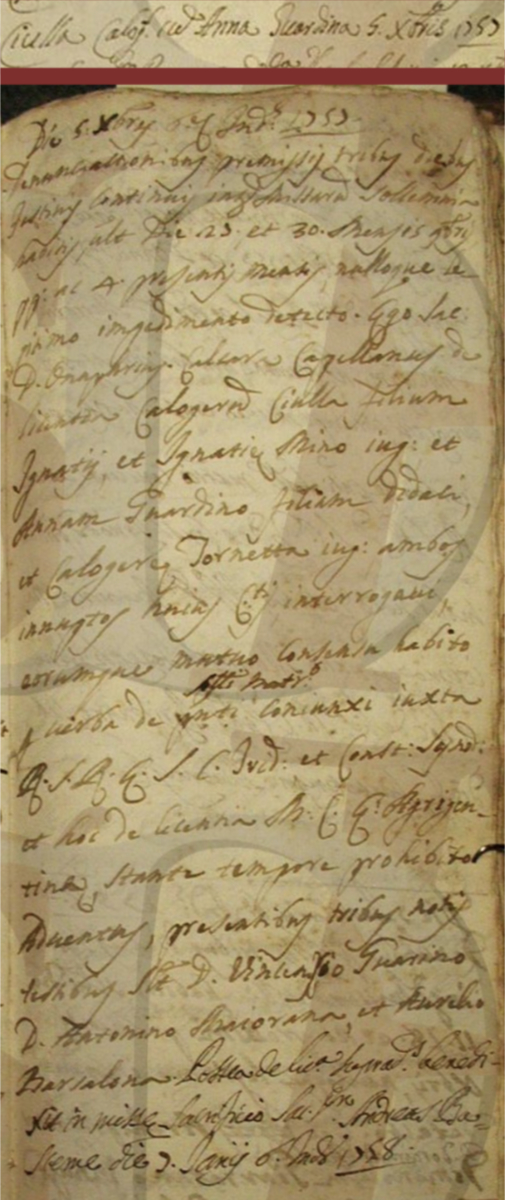 Ciulla Calog. cu Anna Guardina 5. Xbris 1757
Die 5. Xbris 6.e Ind. 1757
Denunciationibus premissis tribus diebus
festivis continuis inter missarum sollemnia
habitis ult Die 23. et 30. Mensis 9bris
pp: ac 4. presentis mensis, nulloque le
gitimo impedimento detecto. Ego Sac:
D. Onuphrius Capellanus de
licentia Calogerum Ciulla filium
Ignatij, et Ignatie Mino iug: et
Annam Guardino filiam Didaci,
et Calogere Tornetta iug: ambos
innuptos huius interrogavi,
eorumque mutuo consensu habito
Mat.
verba de pnti coniunxi iuxta
R. S. R. E. S. C. Trid: et Const: Synod:
et hoc de licentia M. C. Agrigen-
tine, stante tempore prohibito
Adventus, presentibus tribus notis
testibus D. Vincenso Guarino
D. Antonino Maiorana, et Aurelio
Barsalona. Postea de lic. benedi-
xit in misse sacrificio Sac. Andreas
die 7. Janij 6. Ind. 1758.